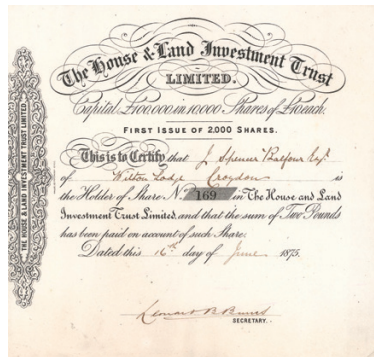 The House & Land Investment Trust
LIMITED.
Capital £100,000 in 10,000 Shares of £10 each.
FIRST ISSUE OF 2,000 SHARES.
This is to Certify that J Spencer Balfour Esqr.
of Wilton Lodge Croydon is
the Holder of Share No. 169 in The House and Land
Investment Trust Limited, and that the sum of Two Pounds
has been paid on account of such Share.
Dated this 16th day of June 1875.
SECRETARY.
THE HOUSE & LAND INVESTMENT TRUST LIMITED.